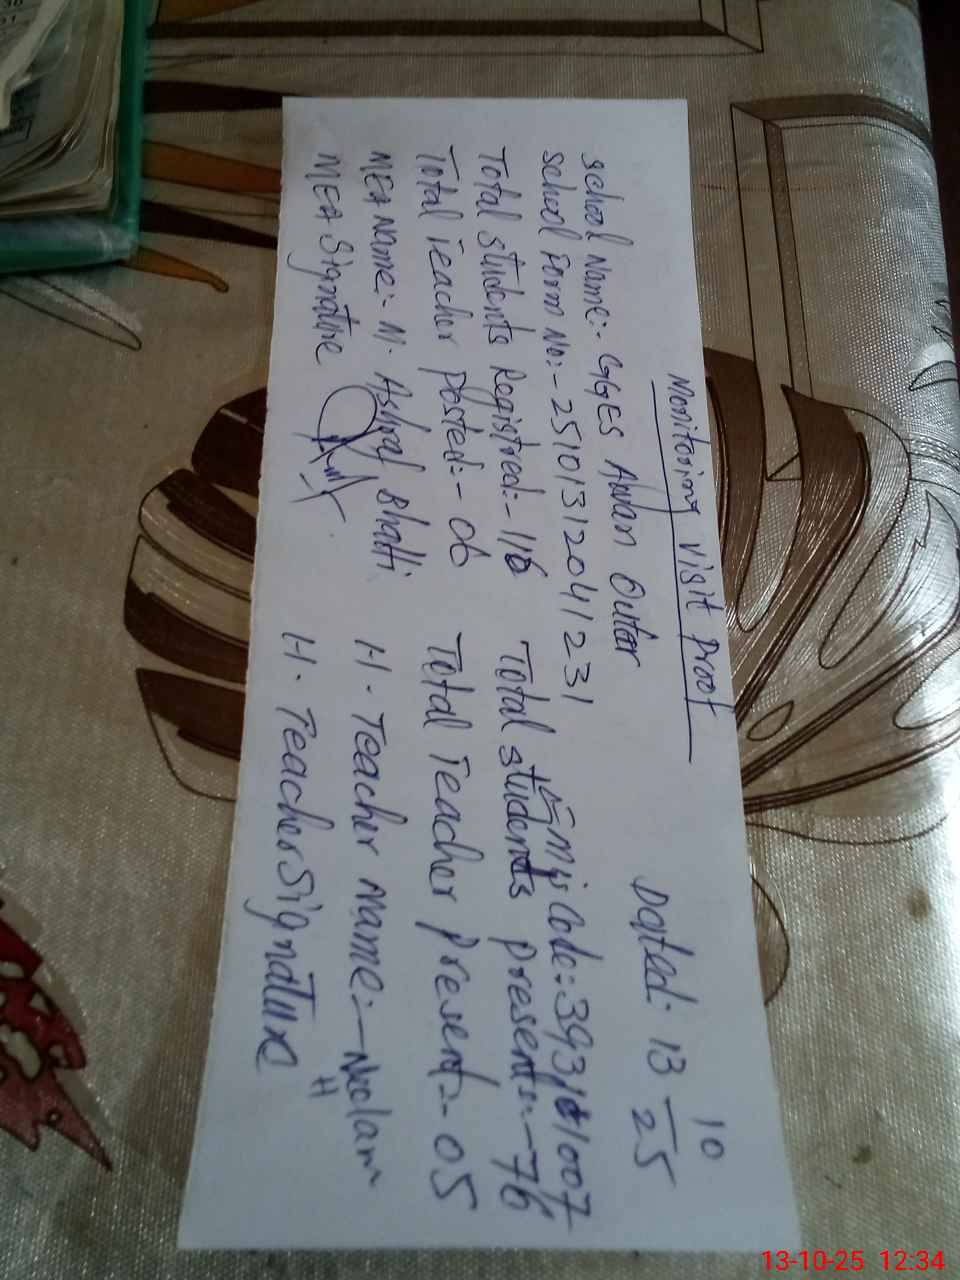 Monitoring visit Proof
Dated: 13 10/25
School Name:- GGES Awan Outar
School Form No:- 25101312041231 Emis Code:
Total students Registred:- 116 Total students present:- 76
Total Teacher posted:- 06 Total Teacher present:- 05
MEA Name:- M. Ashraf Bhatti H. Teacher Name:- Neelam
MEA Signature H. Teacher Signature
13-10-25 12:34